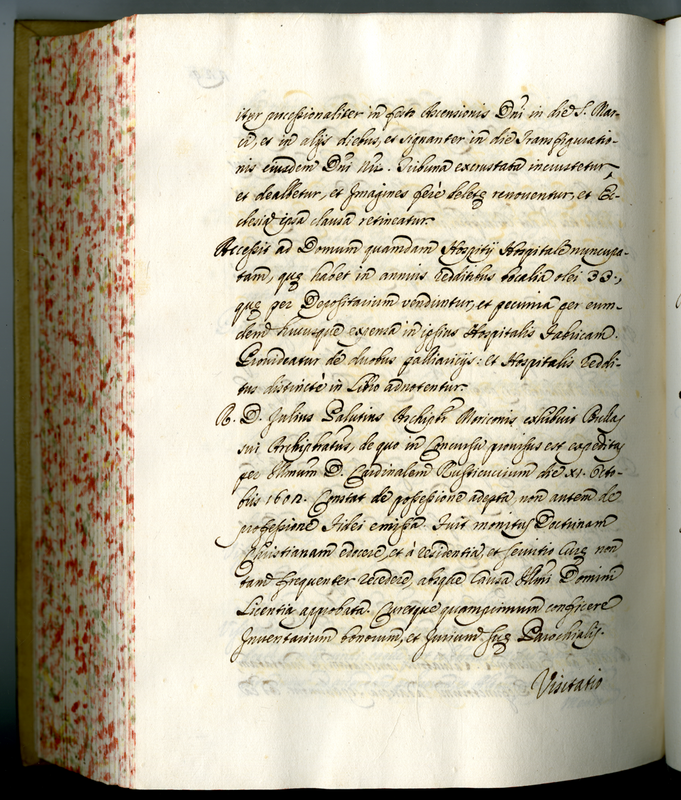 itur processionaliter in festo Ascensionis Dñi in die S. Mar-
ci, et in alijs diebus, et signanter in die Transfiguratio-
nis eiusdem Dñi Nri. Tribuna excrustata incrustetur
et dealbetur, et Imagines ferè deletę renoventur, et Ec-
clesia ipsa clausa retineatur.
Accessit ad Domum quamdam Hospitij Hospitale nuncupa-
tam, quę habet in annuis redditibus bocalia olei 33:,
quę per Depositarium venduntur, et pecunia per eun-
dem hucusque expensa in ipsius Hospitalis Fabricam.
Provideatur de duobus palliaricijs: et Hospitalis reddi-
tus distinctè in Libro adnotentur.
R. D. Julius Salutius Archipbr Moriconis exhibuit Bullas
sui Archipbratus, de quo in Concursu provisus est expeditas
per Illmum D. Cardinalem Rusticuccium die XI. Octo-
bris 1602. Constat de possessione adepta non autem de
professione Fidei emissa. Fuit monitus Doctrinam
Christianam edocere, et à residentia, et servitio Curę non
tam frequenter recedere, absque causa Illmi Domini
Licentia approbata. Curetque quamprimum conficere
Inventarium bonorum, et Jurium suę Parochialis.
Visitatio